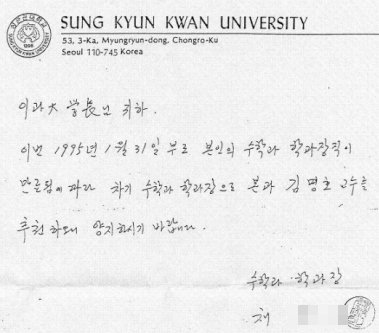 SUNG KYUN KWAN UNIVERSITY
53, 3-Ka, Myungryun-dong, Chongro-Ku
Seoul 110-745 Korea
이과大 学長님 귀하.
이번 1995년 1월 31일 부로 본인의 수학과 학과장직이
만료됨에 따라 차기 수학과 학과장으로 본과 김명호 교수를
추천 하오니 양지하시기 바랍니다.
수학과 학과장
채